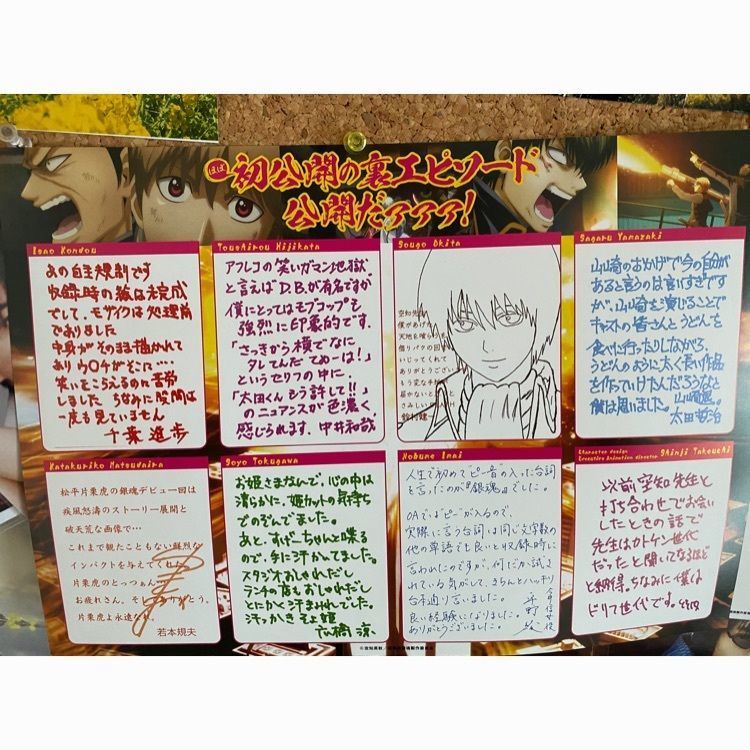 ほぼ 初公開の裏エピソード
公開だァァァ!
Isao Kondou
あの自主規制です
収録時の絵は未完成
でして、モザイクは処理前
でありました
中身がそのまま描かれて
ありウ○チがそこに‥‥
笑いをこらえるのに苦労
しました ちなみに質問は
一度も見ていません
千葉進歩
Toushirou Hijikata
アフレコの"笑いガマン地獄"
と言えばD.B.が有名ですが
僕にとってはモブコップも
強烈に印象的です。
「さっきから横でなに
タレてんだてめーは!」
というセリフの中に、
「太田くんもう許して!!」
のニュアンスが色濃く
感じられます。中井和哉
Sougo Okita
空知先生
僕があげた
天地を喰らう
借りパクの図
いじってくれて
ありがとうござい
もう変な手紙
届かないと
さみしい
鈴村健一
Sagaru Yamazaki
山崎のおかげで今の自分が
あると言うのは言いすぎです
が、山崎を演じることで
キャストの皆さんとうどんを
食べに行ったりしながら、
うどんのように太く長い作品
を作っていけたんだろうなと
僕は思いました。山崎退。
太田哲治
Katakuriko Matsudaira
松平片栗虎の銀魂デビュー回は
疾風怒濤のストーリー展開と
破天荒な画像で…
これまで観たこともない鮮烈な
インパクトを与えてくれた
片栗虎のとっつぁん
お疲れさん、そしてありがとう、
片栗虎よ永遠なれ
若本規夫
Soyo Tokugawa
お姫さまなんで、心の中は
清らかに、姫カットの気持ち
でのぞんでました。
あと、すげーちゃんと喋る
ので、手に汗かいてました。
スタジオおしゃれだし
ランチの店もおしゃれだし
とにかく汗まみれでした。
汗っかき そよ姫
高橋 涼
Nobume Imai
人生で初めてピー音の入った台詞
を言ったのが『銀魂』でした。
OAではピーが入るので、
実際に言う台詞は同じ文字数の
他の単語でも良いと収録時に
言われたのですが、何だか試さ
れている気がして、きちんとハッキリ
台本通り言いました。
良い経験になりました。
ありがとうございました。
今井信女役
平野 綾
Character design
Executive Animation director
Shinji Takeuchi
以前、空知先生と
打ち合わせでお会い
したときの話で
先生はカトケン世代
だったと聞いてなるほど
と納得。ちなみに僕は
ドリフ世代です。